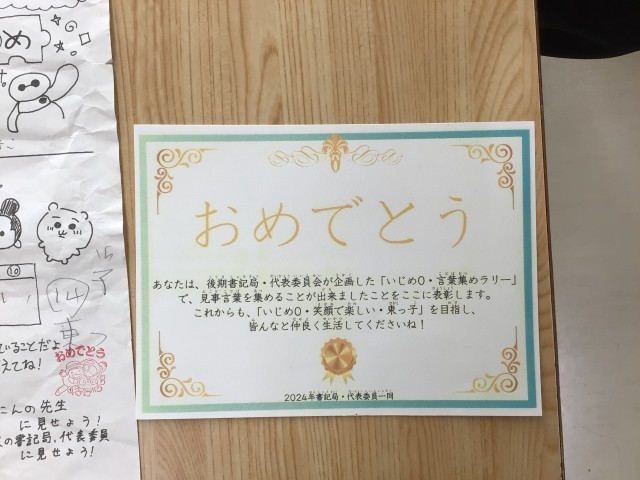 め
⑩
⑭
東っ
いることだよ
えてね！
おめでとう
にんの先生
に見せよう！
の書記局、代表委員
に見せよう！
おめでとう
あなたは、後期書記局・代表委員会が企画した「いじめ0・言葉集めラリー」
で、見事言葉を集めることが出来ましたことをここに表彰します。
これからも、「いじめ0・笑顔で楽しい・東っ子」を目指し、
皆んなと仲良く生活してくださいね！
2024年書記局・代表委員一同